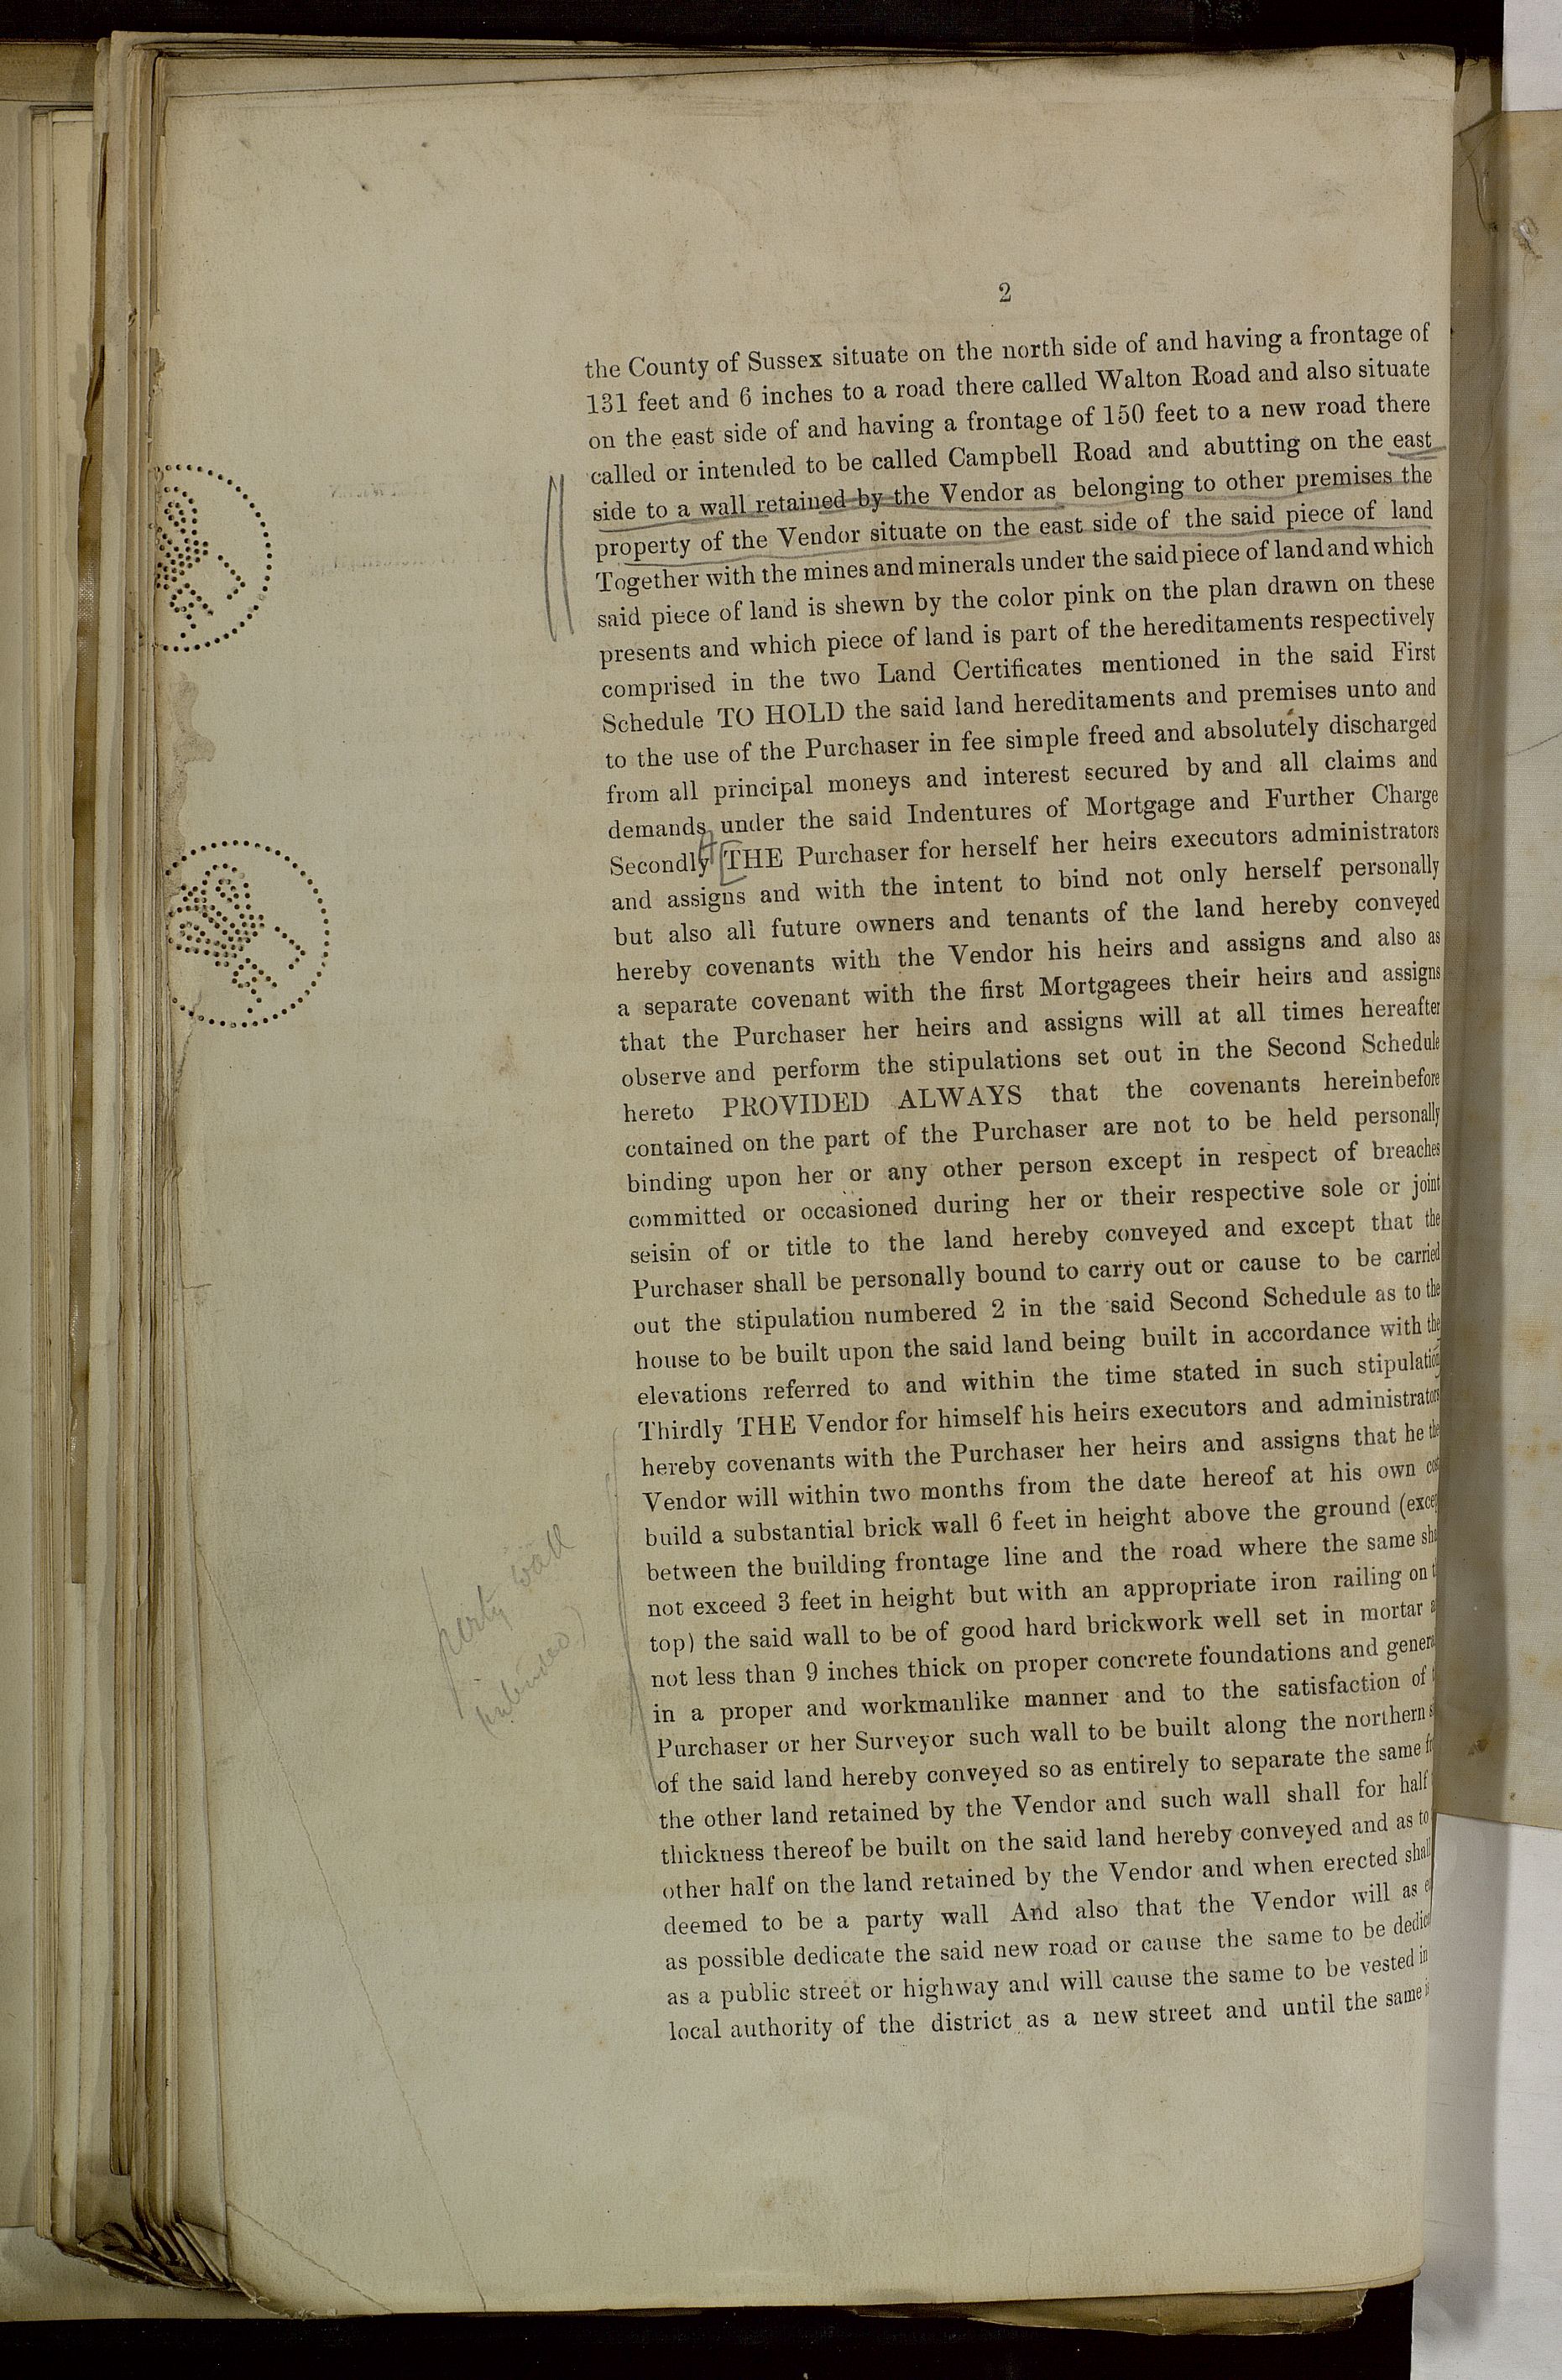 2
the County of Sussex situate on the north side of and having a frontage of
131 feet and 6 inches to a road there called Walton Road and also situate
on the east side of and having a frontage of 150 feet to a new road there
called or intended to be called Campbell Road and abutting on the east
side to a wall retained by the Vendor as belonging to other premises the
property of the Vendor situate on the east side of the said piece of land
Together with the mines and minerals under the said piece of land and which
said piece of land is shewn by the color pink on the plan drawn on these
presents and which piece of land is part of the hereditaments respectively
comprised in the two Land Certificates mentioned in the said First
Schedule TO HOLD the said land hereditaments and premises unto and
to the use of the Purchaser in fee simple freed and absolutely discharged
from all principal moneys and interest secured by and all claims and
demands under the said Indentures of Mortgage and Further Charge
Secondly [THE Purchaser for herself her heirs executors administrators
and assigns and with the intent to bind not only herself personally
but also all future owners and tenants of the land hereby conveyed
hereby covenants with the Vendor his heirs and assigns and also as
a separate covenant with the first Mortgagees their heirs and assigns
that the Purchaser her heirs and assigns will at all times hereafter
observe and perform the stipulations set out in the Second Schedule
hereto PROVIDED ALWAYS that the covenants hereinbefore
contained on the part of the Purchaser are not to be held personally
binding upon her or any other person except in respect of breaches
committed or occasioned during her or their respective sole or joint
seisin of or title to the land hereby conveyed and except that the
Purchaser shall be personally bound to carry out or cause to be carried
out the stipulation numbered 2 in the said Second Schedule as to the
house to be built upon the said land being built in accordance with the
elevations referred to and within the time stated in such stipulation
Thirdly THE Vendor for himself his heirs executors and administrators
hereby covenants with the Purchaser her heirs and assigns that he the
Vendor will within two months from the date hereof at his own
build a substantial brick wall 6 feet in height above the ground (
between the building frontage line and the road where the same
not exceed 3 feet in height but with an appropriate iron railing on
top) the said wall to be of good hard brickwork well set in mortar
not less than 9 inches thick on proper concrete foundations and
in a proper and workmanlike manner and to the satisfaction of
Purchaser or her Surveyor such wall to be built along the northern
of the said land hereby conveyed so as entirely to separate the same
the other land retained by the Vendor and such wall shall for half
thickness thereof be built on the said land hereby conveyed and as to
other half on the land retained by the Vendor and when erected shall
deemed to be a party wall And also that the Vendor will as
as possible dedicate the said new road or cause the same to be
as a public street or highway and will cause the same to be vested in
local authority of the district as a new street and until the same
party wall